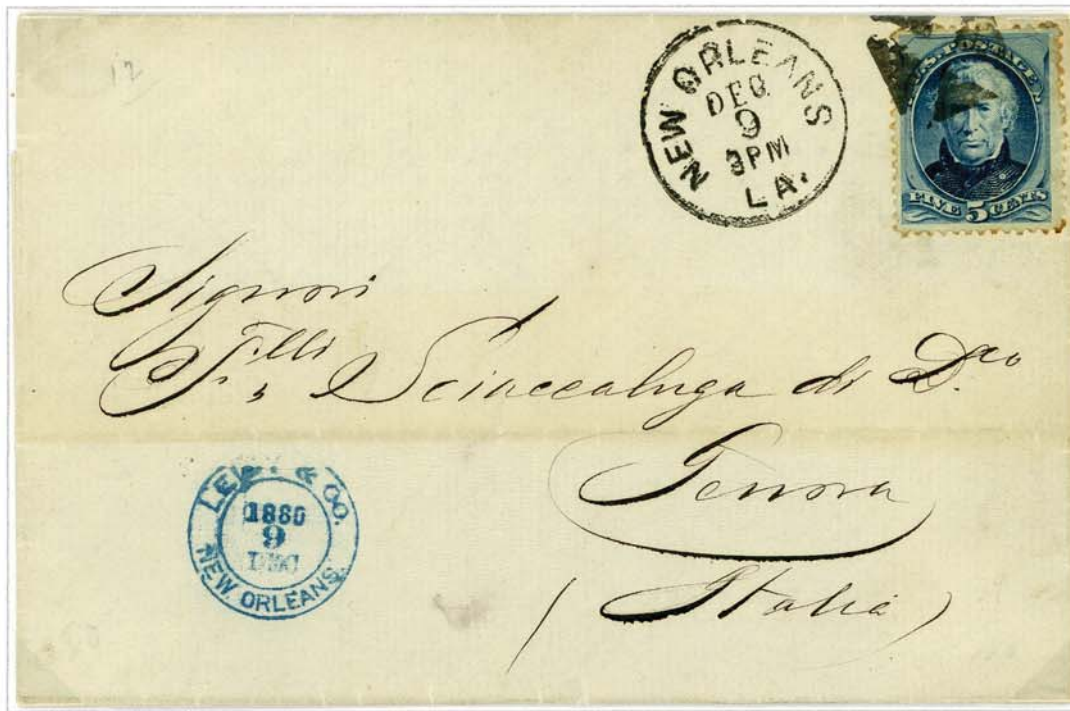 12
NEW ORLEANS
DEC
9
3PM
LA.
U.S. POSTAGE
FIVE 5 CENTS
Signori
F.lli Sciaccaluga di D.co
Genova
(Italia)
& CO.
1880
9
DEC
NEW ORLEANS